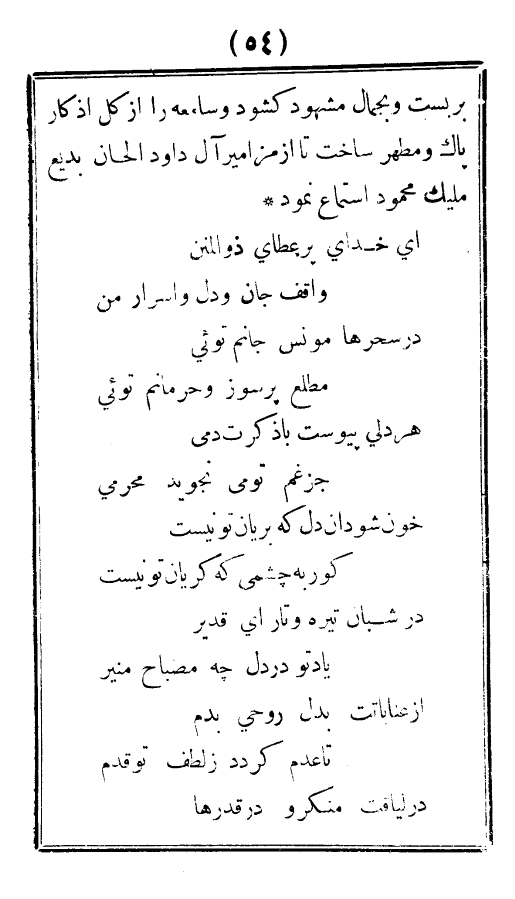 (٥٤)
بر بست و بجمال مشهود كشود و سامعه را از كل اذ كار
پاك و مطهر ساخت تا از مزامير آل داود الحان بديع
مليك محمود استماع نمود *
اي خداي پر عطاي ذوالمنن
واقف جان و دل و اسرار من
در سحرها مونس جانم توئي
مطلع پر سوز و حرمانم توئي
هر دلي پيوست با ذكرت دمى
جز غم تو مى نجويد محرمي
خون شود آن دل كه بريان تو نيست
كور به چشمى كه كريان تو نيست
در شبان تيره و تار اي قدير
ياد تو در دل چه مصباح منير
از عناياتت بدل روحي بدم
تا عدم كردد ز لطف تو قدم
در لياقت منكر و در قدرها